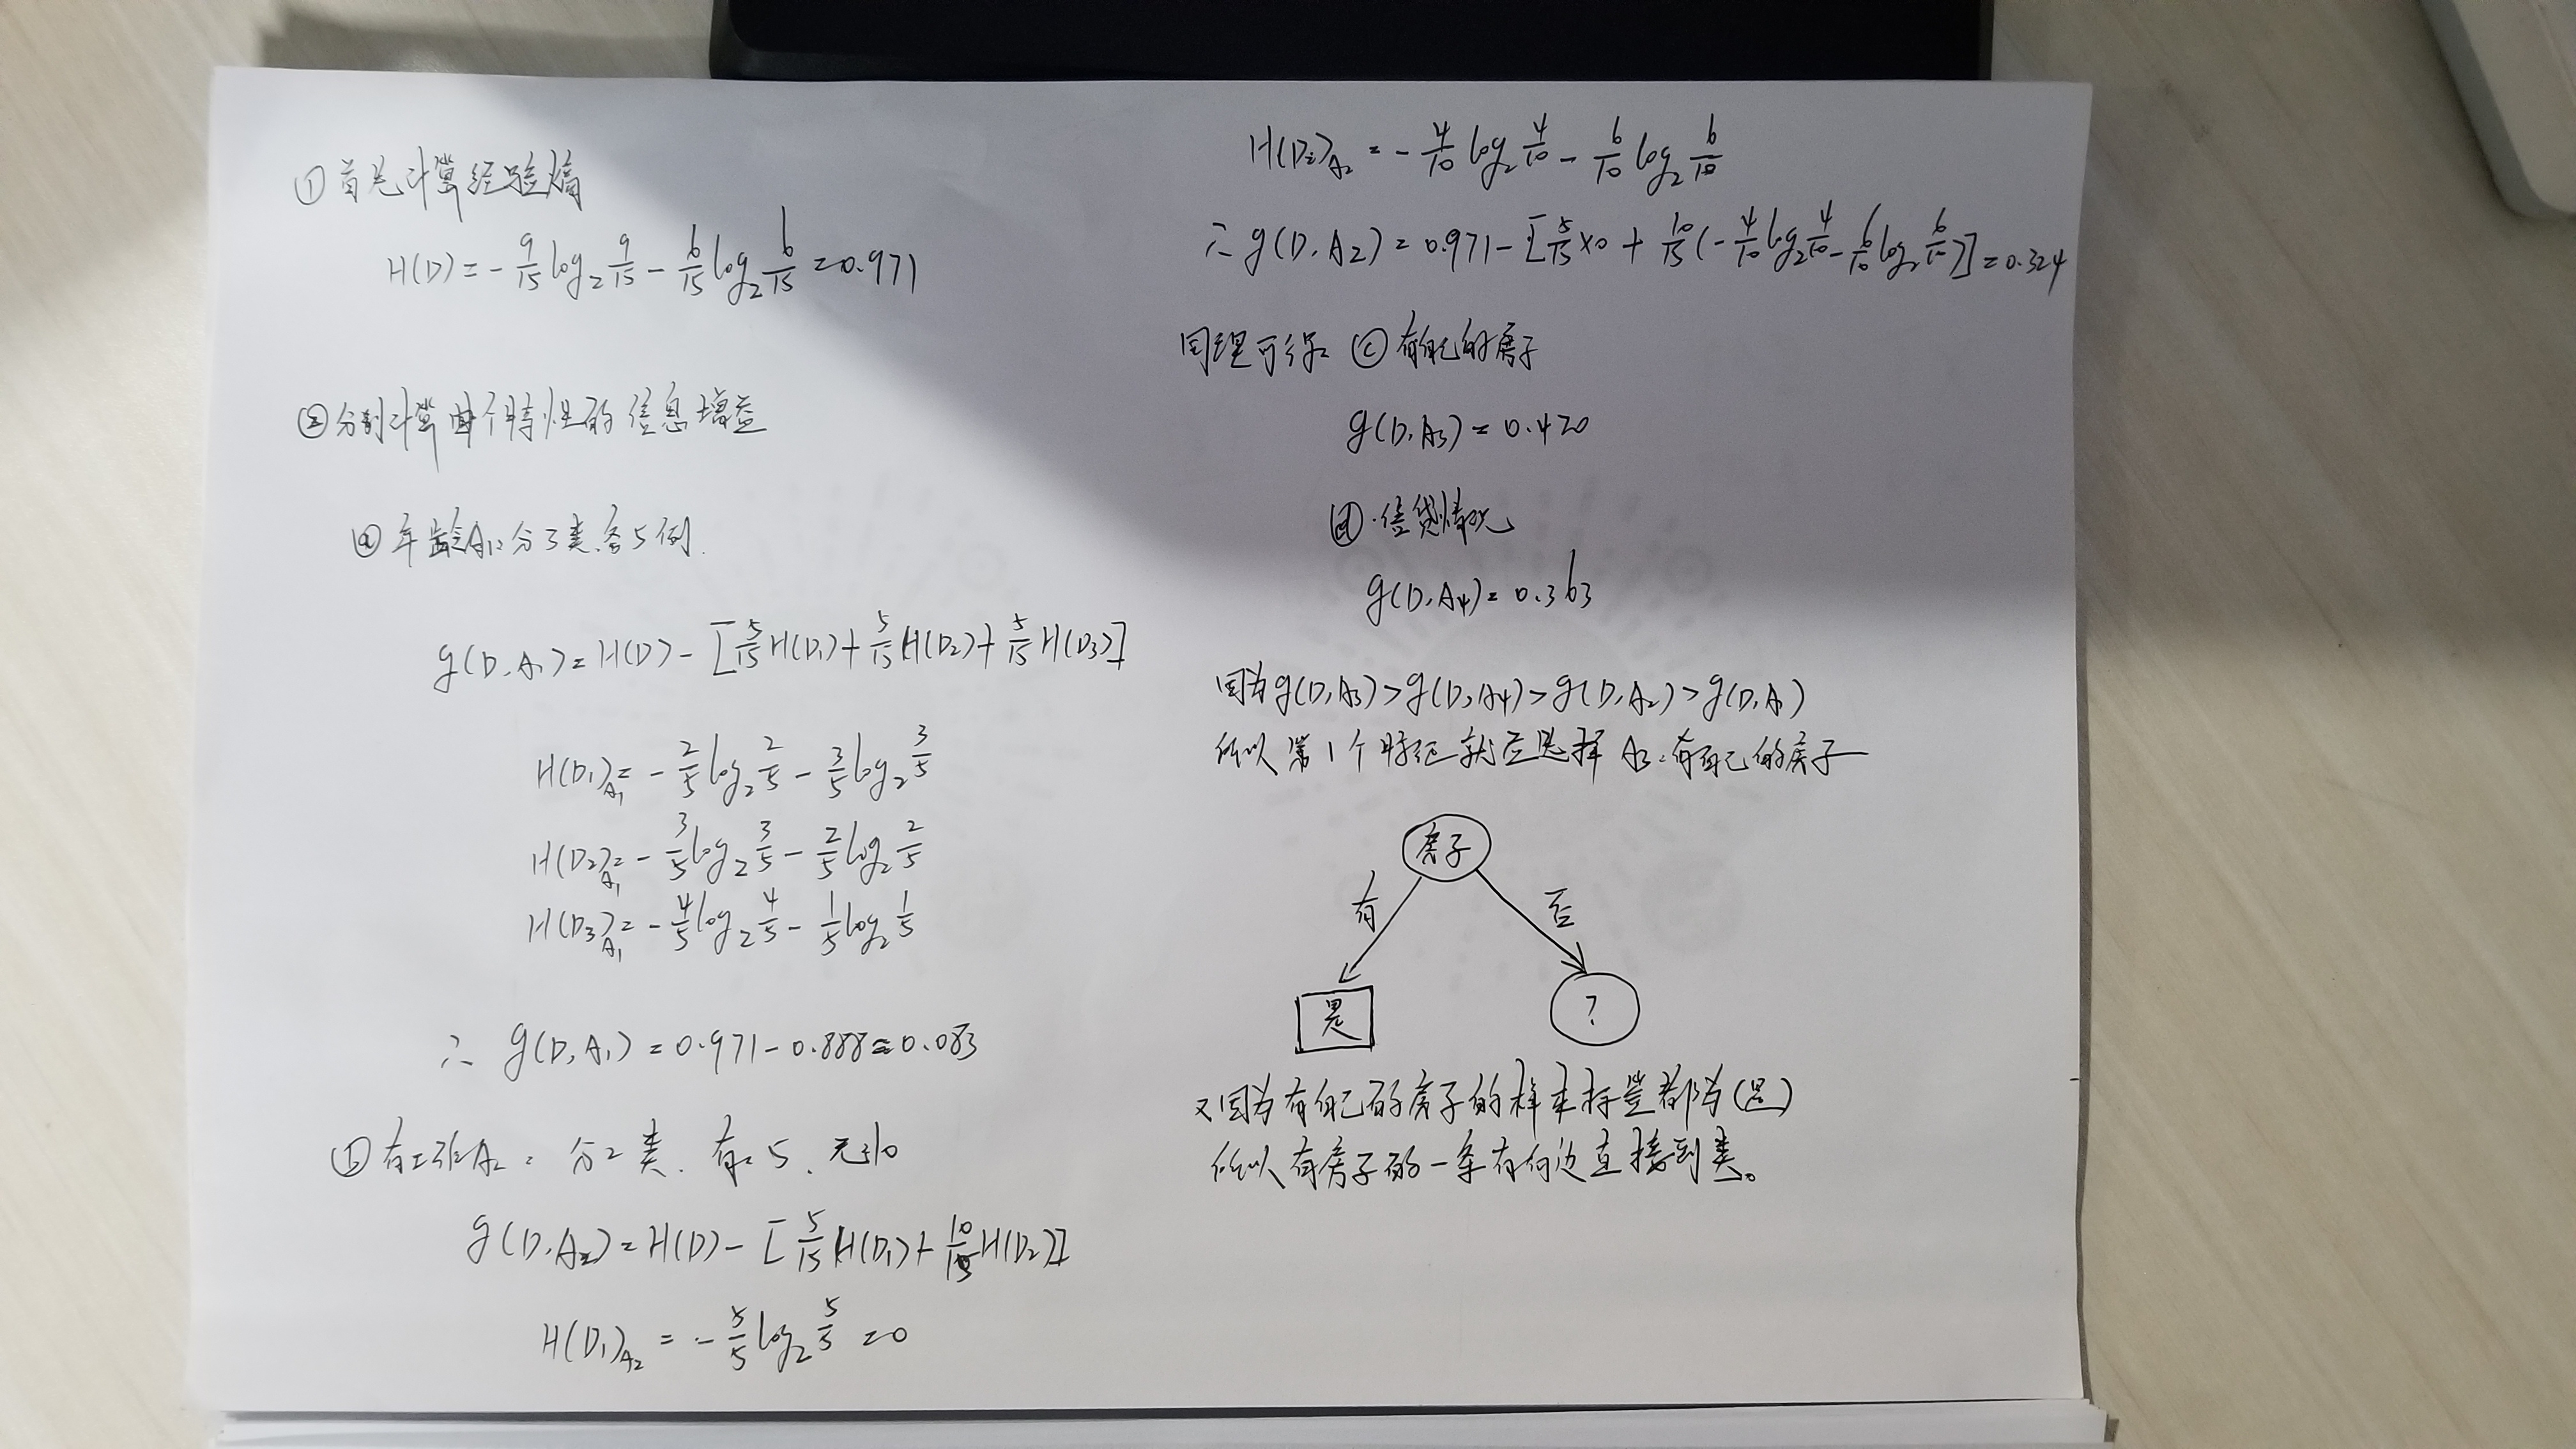 ① 首先计算经验熵
H(D) = - 9/15 log₂ 9/15 - 6/15 log₂ 6/15 = 0.971
② 分别计算每个特性的信息增益
ⓐ 年龄A₁: 分3类, 各5例.
g(D, A₁) = H(D) - [5/15 H(D₁) + 5/15 H(D₂) + 5/15 H(D₃)]
H(D₁)A₁ = - 2/5 log₂ 2/5 - 3/5 log₂ 3/5
H(D₂)A₁ = - 3/5 log₂ 3/5 - 2/5 log₂ 2/5
H(D₃)A₁ = - 4/5 log₂ 4/5 - 1/5 log₂ 1/5
∴ g(D, A₁) = 0.971 - 0.888 ≈ 0.083
ⓑ 有工作A₂: 分2类, 有: 5, 无: 10
g(D, A₂) = H(D) - [5/15 H(D₁) + 10/15 H(D₂)]
H(D₁)A₂ = - 5/5 log₂ 5/5 = 0
H(D₂)A₂ = - 4/10 log₂ 4/10 - 6/10 log₂ 6/10
∴ g(D, A₂) = 0.971 - [5/15 × 0 + 10/15 (- 4/10 log₂ 4/10 - 6/10 log₂ 6/10)] = 0.324
同理可得: ⓒ 有自己的房子
g(D, A₃) = 0.420
ⓓ. 信贷情况
g(D, A₄) = 0.363
因为 g(D, A₃) > g(D, A₄) > g(D, A₂) > g(D, A₁)
所以第1个特征就应选择 A₃: 有自己的房子
房子
有 否
是 ?
又因为有自己的房子的样本标签都为(是)
所以有房子的一条有向边直接到类。